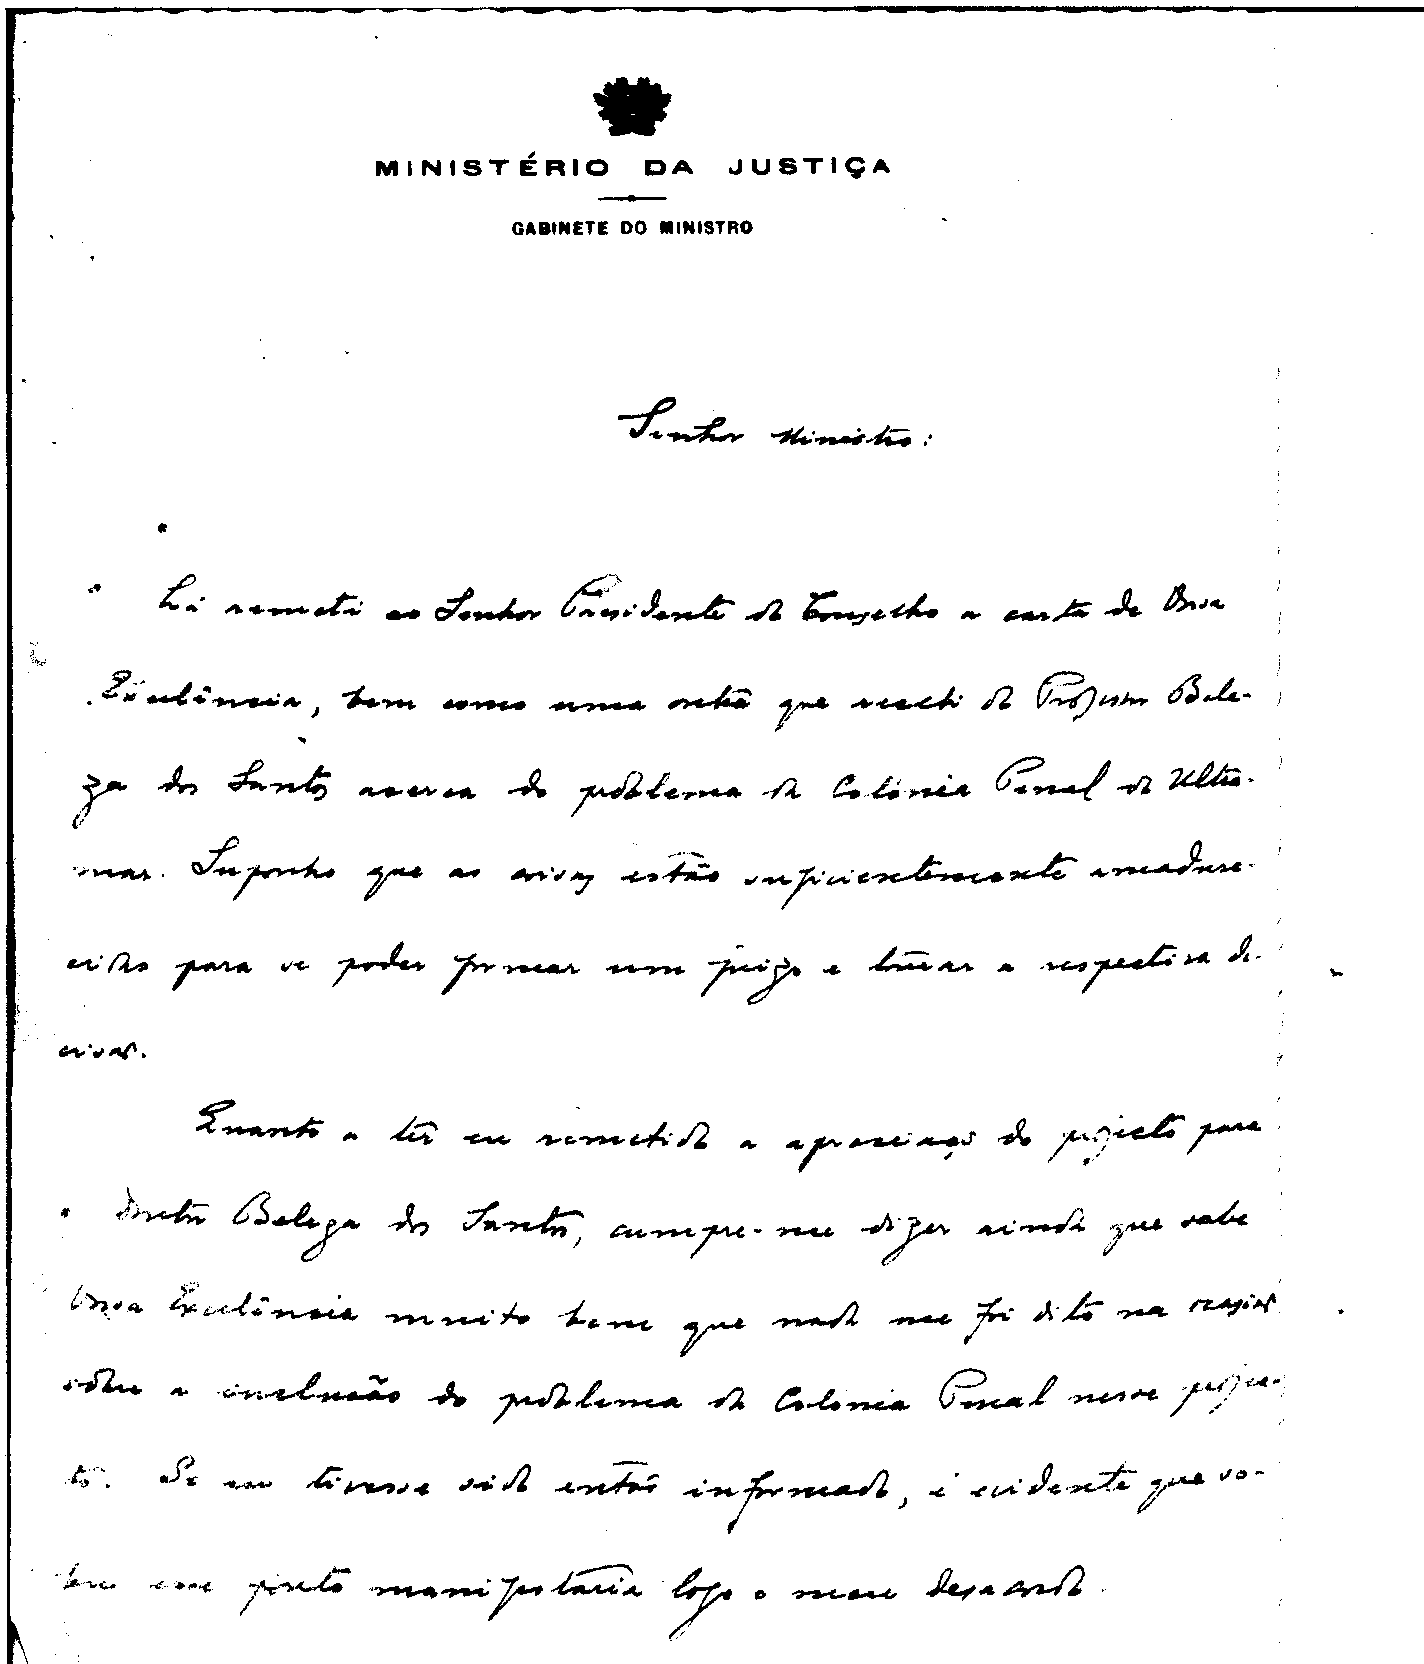 MINISTÉRIO DA JUSTIÇA
GABINETE DO MINISTRO
Senhor Ministro:
Já remeti ao Senhor Presidente do Conselho a carta de Vossa
Excelência, bem como uma outra que recebi do Professor Bele-
za dos Santos acerca do problema da Colónia Penal do Ultra-
mar. Suponho que as coisas estão suficientemente amadure-
cidas para se poder formar um juizo e tomar a respectiva de-
cisão.
Quanto a ter eu remetido a apreciação do projecto para
o Doutor Beleza dos Santos, cumpre-me dizer ainda que sabe
Vossa Excelência muito bem que nada me foi dito na ocasião
sobre a inclusão do problema da Colónia Penal nesse projec-
to. Se eu tivesse sido então informado, é evidente que so-
bre esse ponto manifestaria logo o meu desacordo.